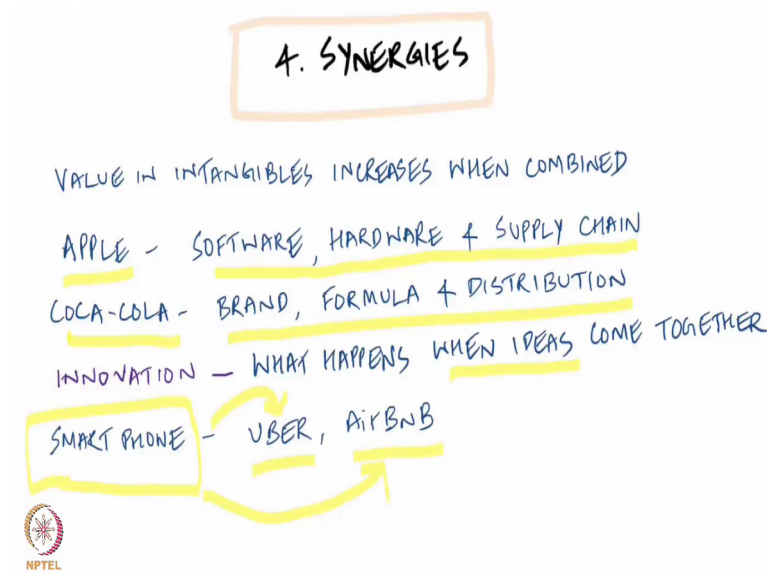 4. SYNERGIES
VALUE IN INTANGIBLES INCREASES WHEN COMBINED
APPLE - SOFTWARE, HARDWARE & SUPPLY CHAIN
COCA-COLA - BRAND, FORMULA & DISTRIBUTION
INNOVATION - WHAT HAPPENS WHEN IDEAS COME TOGETHER
SMART PHONE - UBER, AirBNB
NPTEL